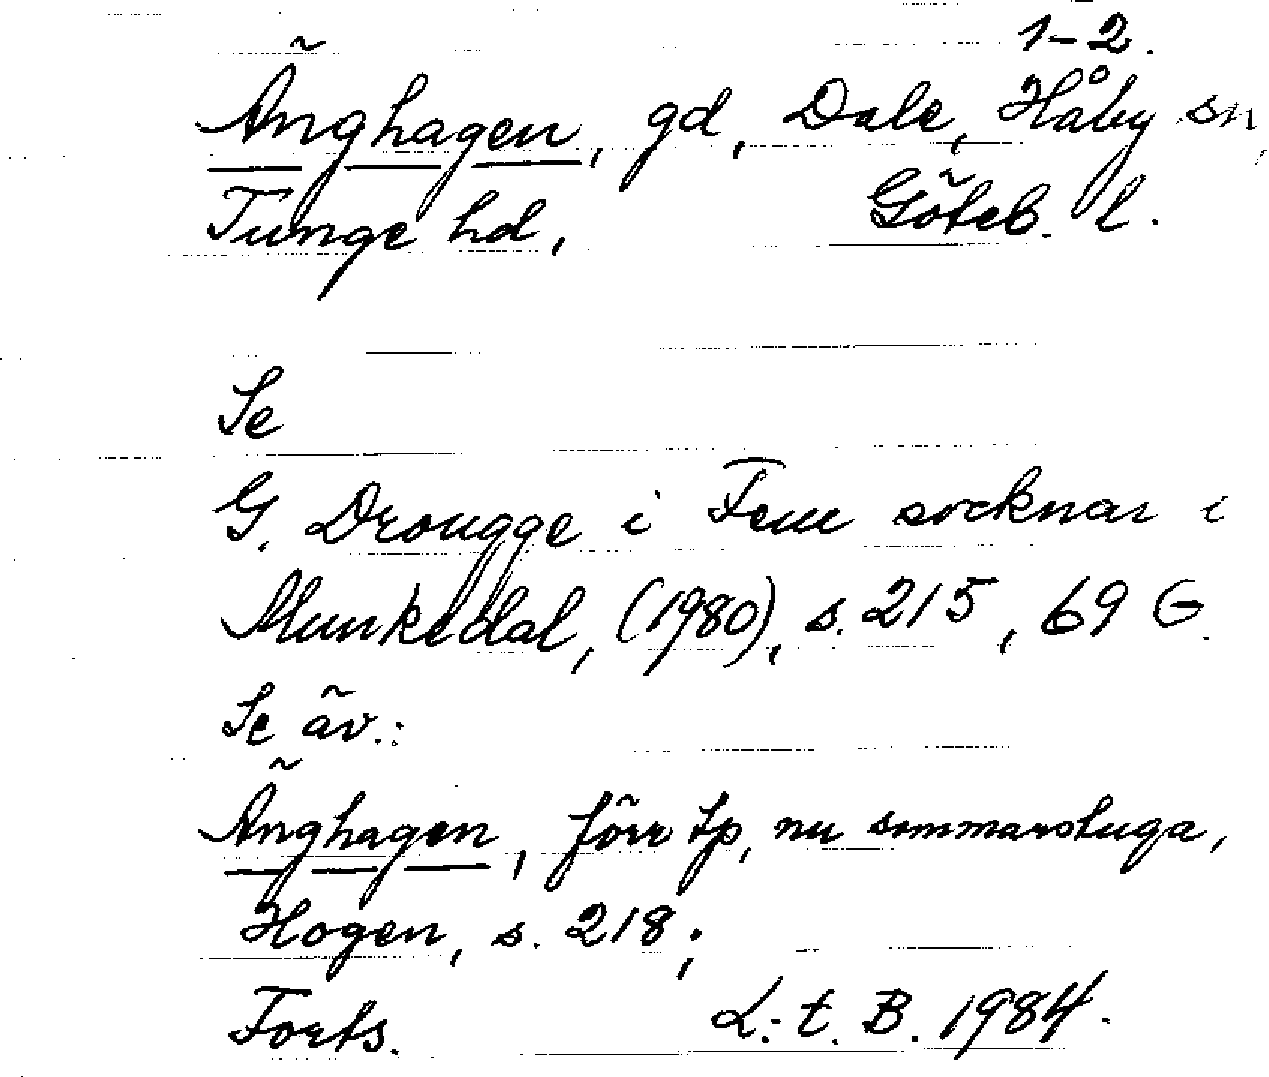 1-2.
Änghagen, gd, Dale, Håby sn,
Tunge hd, Göteb. l.
Se
G. Drougge i Fem socknar i
Munkedal, (1980), s. 215, 69 G.
Se äv.:
Änghagen, förr tp, nu sommarstuga,
Hogen, s. 218;
Forts. L. t. B. 1984.